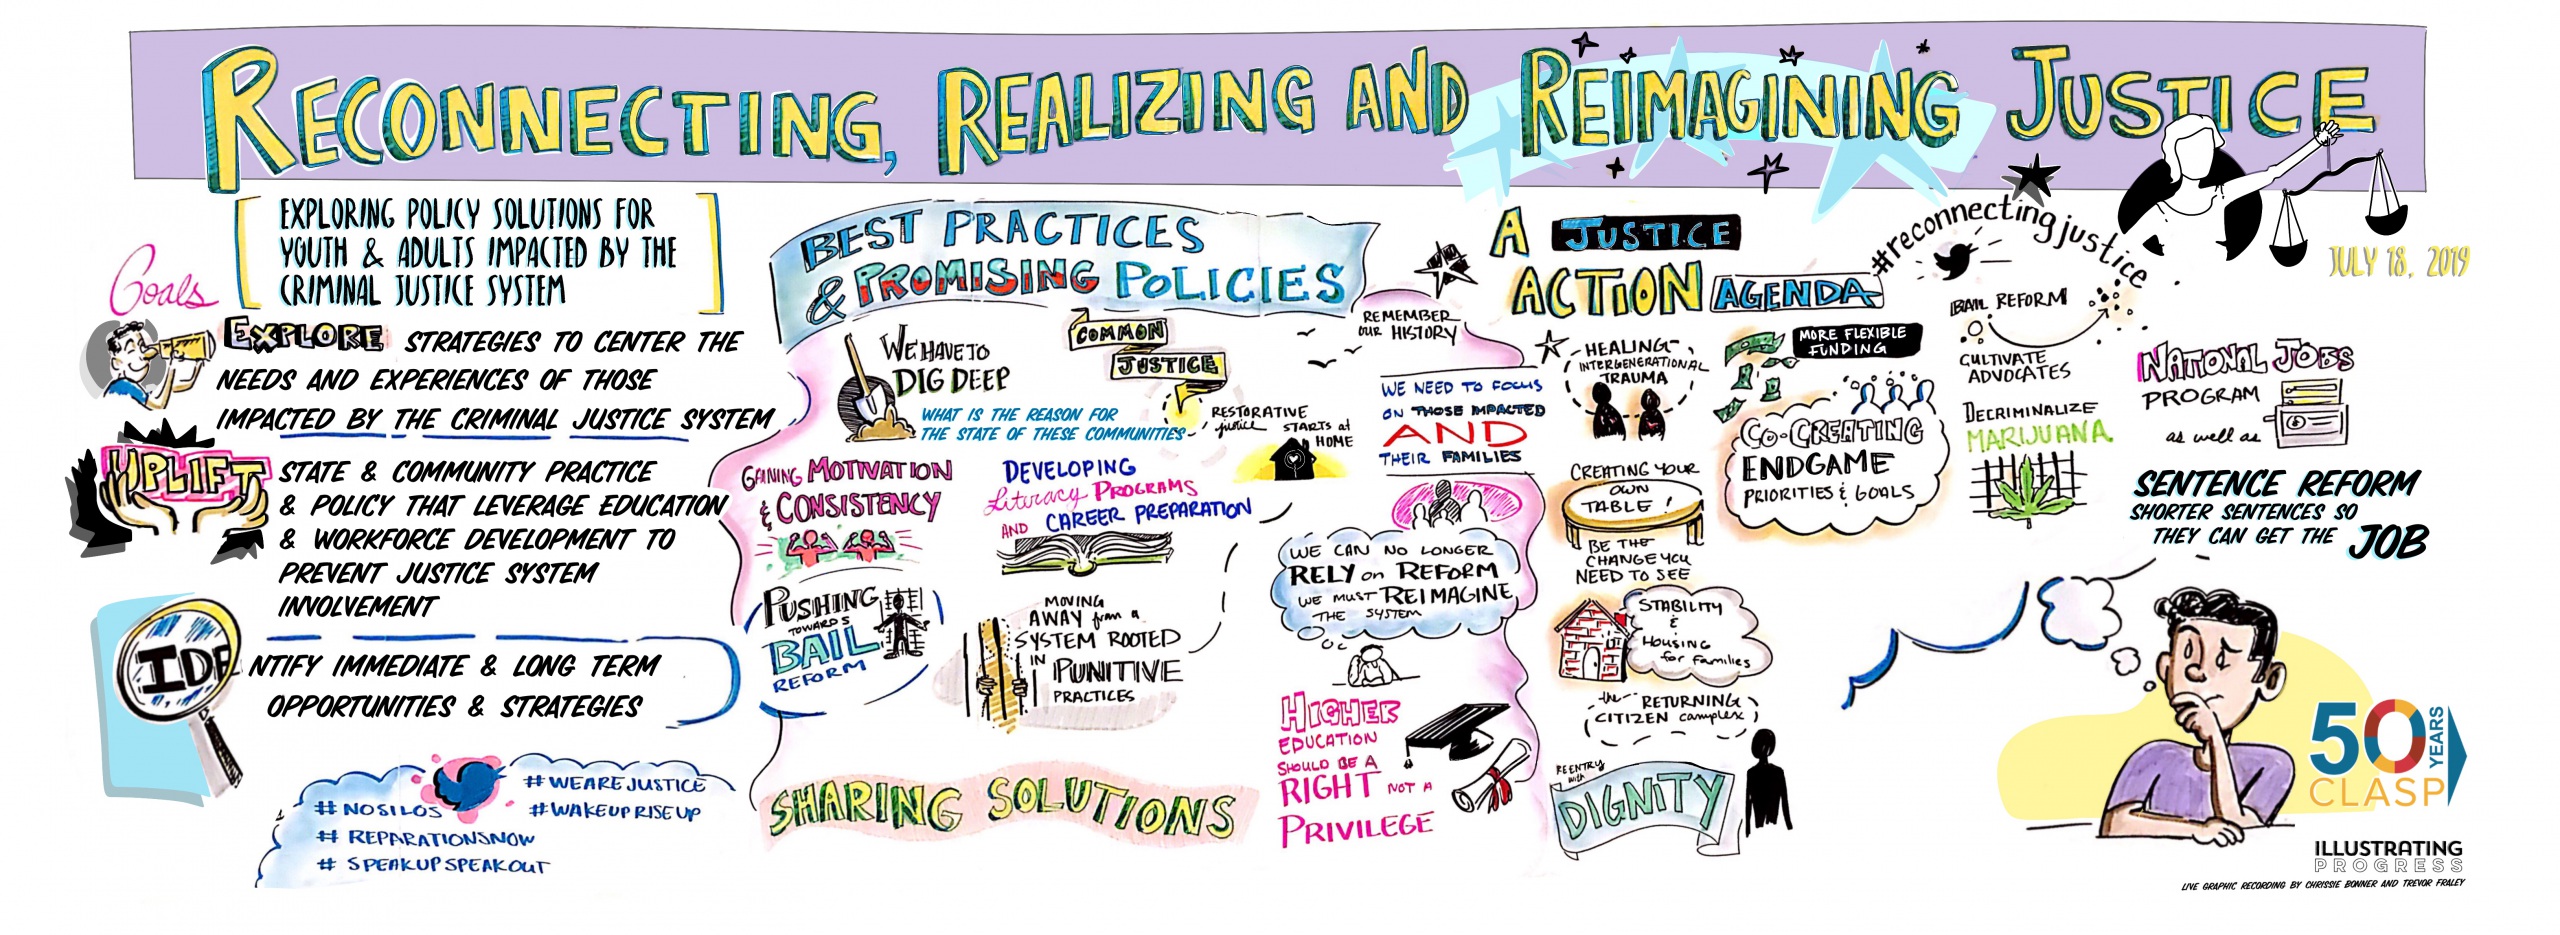 RECONNECTING, REALIZING AND REIMAGINING JUSTICE
JULY 18, 2019
EXPLORING POLICY SOLUTIONS FOR
YOUTH & ADULTS IMPACTED BY THE
CRIMINAL JUSTICE SYSTEM
Goals
EXPLORE STRATEGIES TO CENTER THE
NEEDS AND EXPERIENCES OF THOSE
IMPACTED BY THE CRIMINAL JUSTICE SYSTEM
UPLIFT STATE & COMMUNITY PRACTICE
& POLICY THAT LEVERAGE EDUCATION
& WORKFORCE DEVELOPMENT TO
PREVENT JUSTICE SYSTEM
INVOLVEMENT
IDENTIFY IMMEDIATE & LONG TERM
OPPORTUNITIES & STRATEGIES
#WEAREJUSTICE
#NOSILOS
#WAKEUPRISEUP
#REPARATIONSNOW
#SPEAKUPSPEAKOUT
BEST PRACTICES
& PROMISING POLICIES
WE HAVE TO
DIG DEEP
WHAT IS THE REASON FOR
THE STATE OF THESE COMMUNITIES
COMMON
JUSTICE
RESTORATIVE
justice STARTS at
HOME
GAINING MOTIVATION
& CONSISTENCY
DEVELOPING
Literacy PROGRAMS
AND CAREER PREPARATION
PUSHING
TOWARDS
BAIL
REFORM
MOVING
AWAY from a
SYSTEM ROOTED
IN PUNITIVE
PRACTICES
SHARING SOLUTIONS
REMEMBER
OUR HISTORY
WE NEED TO FOCUS
ON THOSE IMPACTED
AND
THEIR FAMILIES
WE CAN NO LONGER
RELY on REFORM
WE MUST REIMAGINE
THE SYSTEM
HIGHER
EDUCATION
SHOULD BE A
RIGHT NOT A
PRIVILEGE
A JUSTICE
ACTION AGENDA
#reconnectingjustice
HEALING
INTERGENERATIONAL
TRAUMA
CREATING YOUR
OWN
TABLE!
BE THE
CHANGE YOU
NEED TO SEE
STABILITY
&
HOUSING
for families
the RETURNING
CITIZEN complex
REENTRY
with
DIGNITY
MORE FLEXIBLE
FUNDING
CO-CREATING
ENDGAME
PRIORITIES & GOALS
BAIL REFORM
CULTIVATE
ADVOCATES
DECRIMINALIZE
MARIJUANA
NATIONAL JOBS
PROGRAM
as well as
SENTENCE REFORM
SHORTER SENTENCES SO
THEY CAN GET THE JOB
50 YEARS
CLASP
ILLUSTRATING
PROGRESS
LIVE GRAPHIC RECORDING BY CHRISSIE BONNER AND TREVOR FRALEY